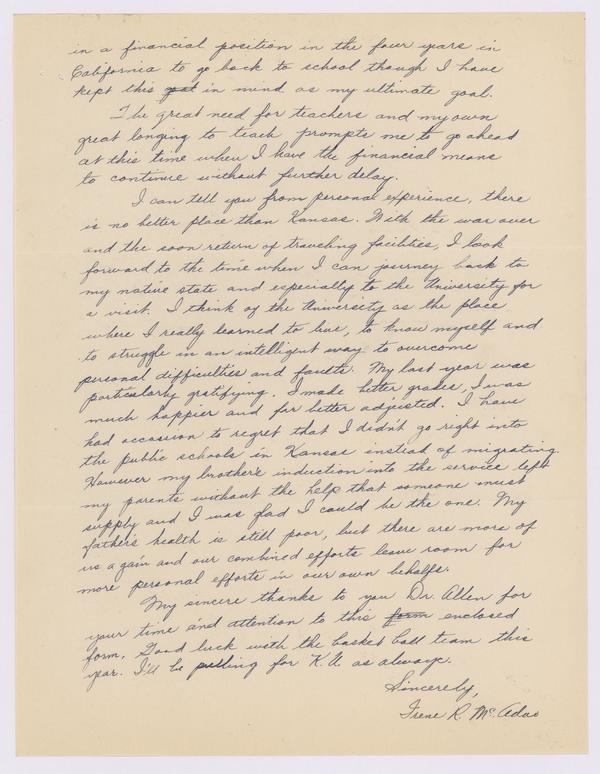 in a financial position in the four years in
California to go back to school though I have
kept this goal in mind as my ultimate goal.
The great need for teachers and my own
great longing to teach prompts me to go ahead
at this time when I have the financial means
to continue without further delay.
I can tell you from personal experience, there
is no better place than Kansas. With the war over
and the soon return of traveling facilities, I look
forward to the time when I can journey back to
my native state and especially to the University for
a visit. I think of the University as the place
where I really learned to live, to know myself and
to struggle in an intelligent way to overcome
personal difficulties and faults. My last year was
particularly gratifying. I made better grades, I was
much happier and far better adjusted. I have
had occasion to regret that I didn't go right into
the public schools in Kansas instead of migrating.
However my brother's induction into the service left
my parents without the help that someone must
supply and I was glad I could be the one. My
father's health is still poor, but there are more of
us again and our combined efforts leave room for
more personal efforts in our own behalfs.
My sincere thanks to you Dr. Allen for
your time and attention to this form enclosed
form. Good luck with the basket ball team this
year. I'll be pulling for K.U. as always.
Sincerely,
Irene R. McAdoo